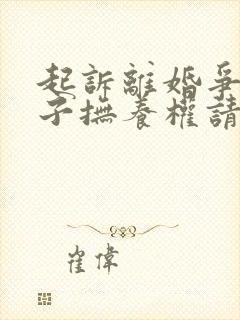 起訴離婚爭
子撫養權請
崔偉